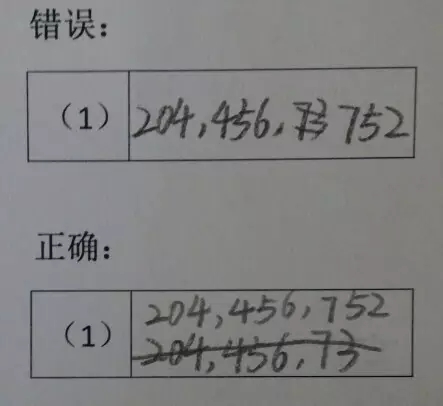 错误：
（1） 204,456,73 752
正确：
（1） 204,456,752
204,456,73